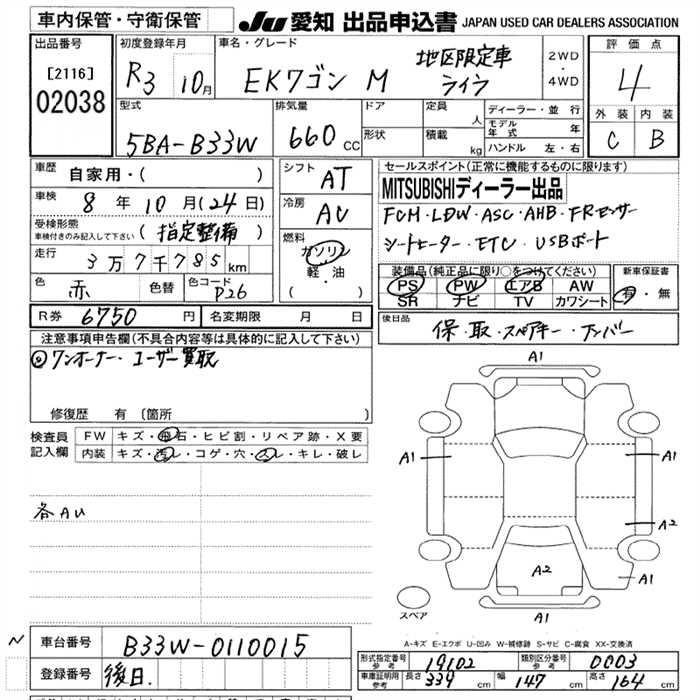 車内保管・守衛保管
JU 愛知 出品申込書 JAPAN USED CAR DEALERS ASSOCIATION
出品番号
[2116]
02038
初度登録年月
R3 10月
車名・グレード
EKワゴン M
地区限定車
ライラ
2WD
・
4WD
評価点
4
外装 内装
C B
型式
5BA-B33W
排気量
660 CC
ドア
形状
定員 人
積載 kg
ディーラー・並行
モデル年式 年
ハンドル 左・右
車歴
自家用・( )
車検
8年10月(24日)
受検形態
車検付きのみ記入して下さい
(指定整備)
走行
3万7千785km
色
赤
色替
色コード
P26
シフト
AT
冷房
AU
燃料
ガソリン
軽・油
( )
セールスポイント(正常に機能するものに限ります)
MITSUBISHIディーラー出品
FCM・LDW・ASC・AHB・FRセンサー
シートヒーター・ETC・USBポート
装備品(純正品に限り○をつけてください)
PS PW エアB AW
SR ナビ TV カワシート
新車保証書
有・無
R券 6750円
名変期限 月 日
後日品
保・取・スペアキー・ナンバー
注意事項申告欄(不具合内容等は具体的に記入して下さい)
◎ワンオーナー・ユーザー買取
修復歴 有(箇所
検査員
記入欄
FW キズ・飛石・ヒビ割・リペア跡・X要
内装 キズ・汚レ・コゲ・穴・スレ・キレ・破レ
各AU
A1
A1
A1
A2
A2
A1
A1
スペア
A-キズ E-エクボ U-凹み W-補修跡 S-サビ C-腐食 XX-交換済
N
車台番号 B33W-0110015
登録番号 後日.
形式指定番号
参考
19102
類別区分番号
参考
0003
車庫証明用
参考
長さ 339 cm
幅 147 cm
高さ 164 cm